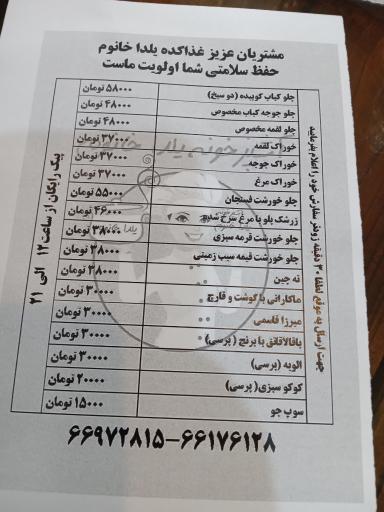 مشتریان عزیز غذاکده یلدا خانوم
حفظ سلامتی شما اولویت ماست
چلو کباب کوبیده (دو سیخ) ۵۸۰۰۰ تومان
چلو جوجه کباب مخصوص ۴۸۰۰۰ تومان
چلو لقمه مخصوص ۴۸۰۰۰ تومان
خوراک لقمه ۳۷۰۰۰ تومان
خوراک جوجه ۳۷۰۰۰ تومان
خوراک مرغ ۳۷۰۰۰ تومان
چلو خورشت فسنجان ۵۵۰۰۰ تومان
زرشک پلو با مرغ سرخ شده ۴۶۰۰۰ تومان
چلو خورشت قرمه سبزی ۳۸۰۰۰ تومان
چلو خورشت قیمه سیب زمینی ۳۸۰۰۰ تومان
ته چین ۲۸۰۰۰ تومان
ماکارانی با گوشت و قارچ ۳۰۰۰۰ تومان
میرزا قاسمی ۳۰۰۰۰ تومان
باقالاقاتق با برنج (پرسی) ۳۰۰۰۰ تومان
الویه (پرسی) ۳۰۰۰۰ تومان
کوکو سبزی (پرسی) ۲۰۰۰۰ تومان
سوپ جو ۱۵۰۰۰ تومان
جهت ارسال به موقع لطفا ۳۰ دقیقه زودتر سفارش خود را اعلام بفرمایید
پیک رایگان از ساعت ۱۲ الی ۲۱
۶۶۹۷۲۸۱۵-۶۶۱۷۶۱۲۸